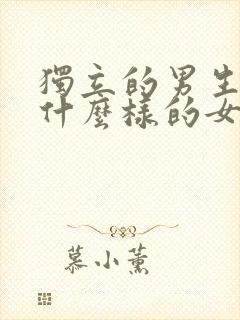 獨立的男生
什麼樣的女
慕小薰